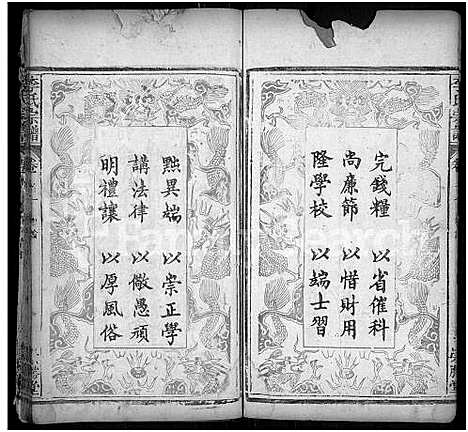 完錢糧 以省催科
尚廉節 以惜財用
隆學校 以端士習
黜異端 以崇正學
講法律 以儆愚頑
明禮讓 以厚風俗
李氏宗譜